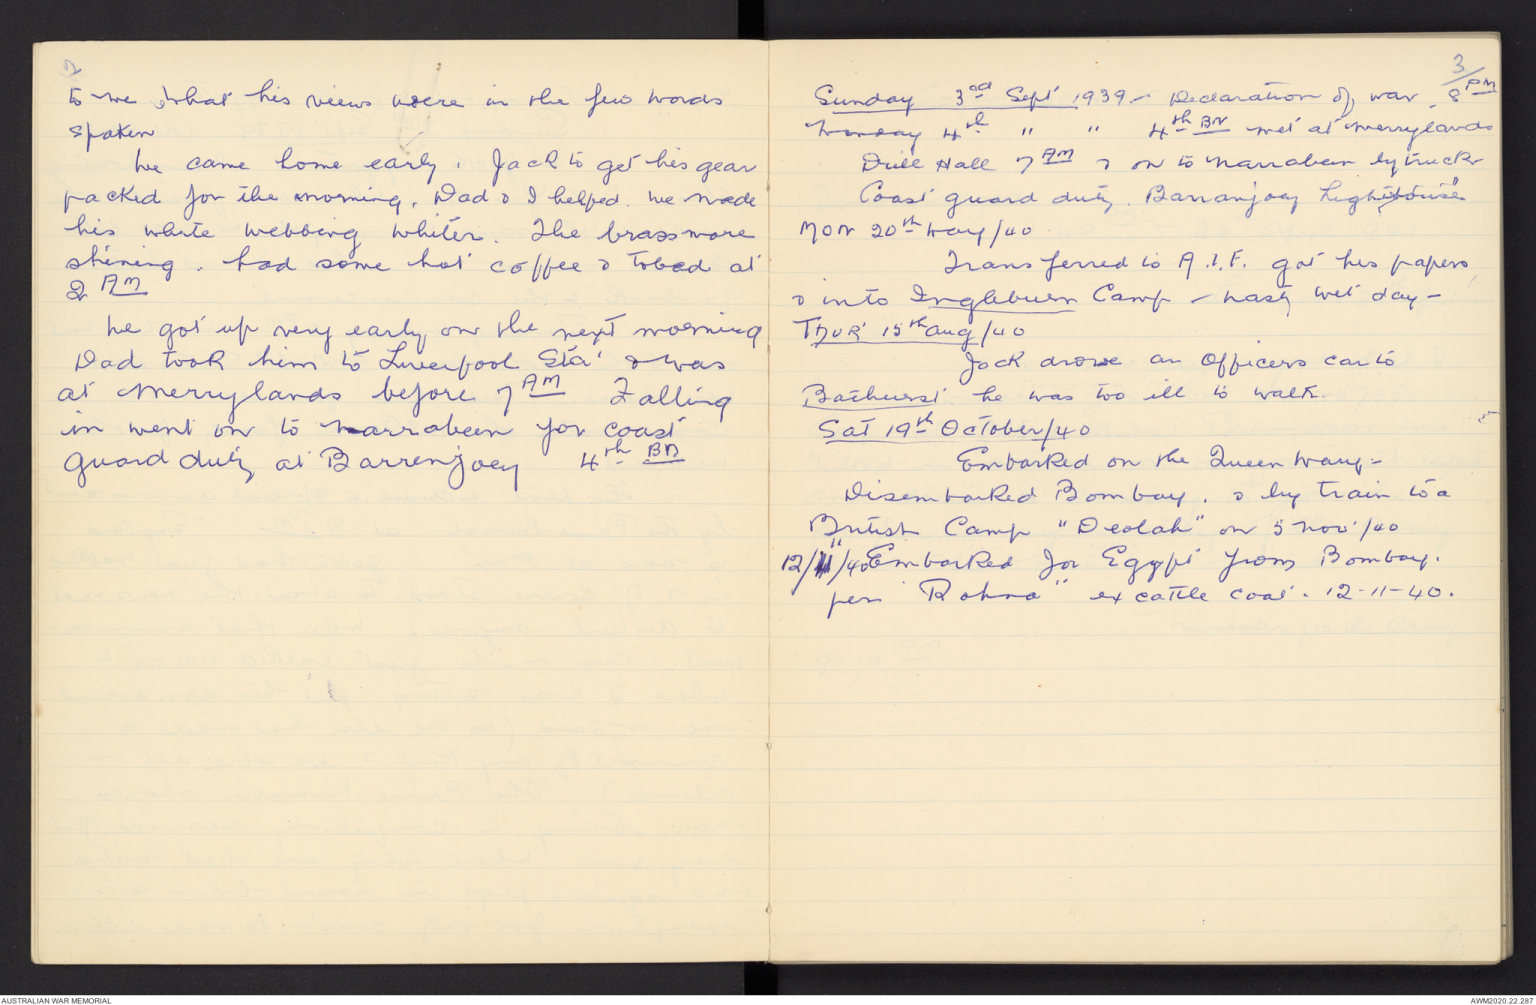 2
to me what his views were in the few words
spoken
We came home early. Jack to get his gear
packed for the morning. Dad & I helped. We made
his white webbing whiter. The brass more
shining. Had some hot coffee & to bed at
2 AM
He got up very early on the next morning
Dad took him to Liverpool Sta' & was
at Merrylands before 7 AM Falling
in went on to Narrabeen for coast
guard duty at Barrenjoey 4th BN
3/
Sunday 3rd Sept 1939 - Declaration of war. 8 PM
Monday 4th " " 4th BN met at Merrylands
Drill Hall 7 AM & on to Narrabeen by truck
Coast guard duty. Barranjoey Lighthouse"
MON 20th May/40
Transferred to A.I.F. got his papers
& into Ingleburn Camp - nasty wet day -
THUR' 15th Aug/40
Jack drove an Officers car to
Bathurst he was too ill to walk.
Sat 19th October/40
Embarked on the Queen Mary -
Disembarked Bombay. & by train to a
British Camp "Deolali" on 5 Nov'/40
12/11/40 Embarked for Egypt from Bombay.
per "Rohna" ex cattle coat. 12-11-40.
AUSTRALIAN WAR MEMORIAL
AWM2020.22.267